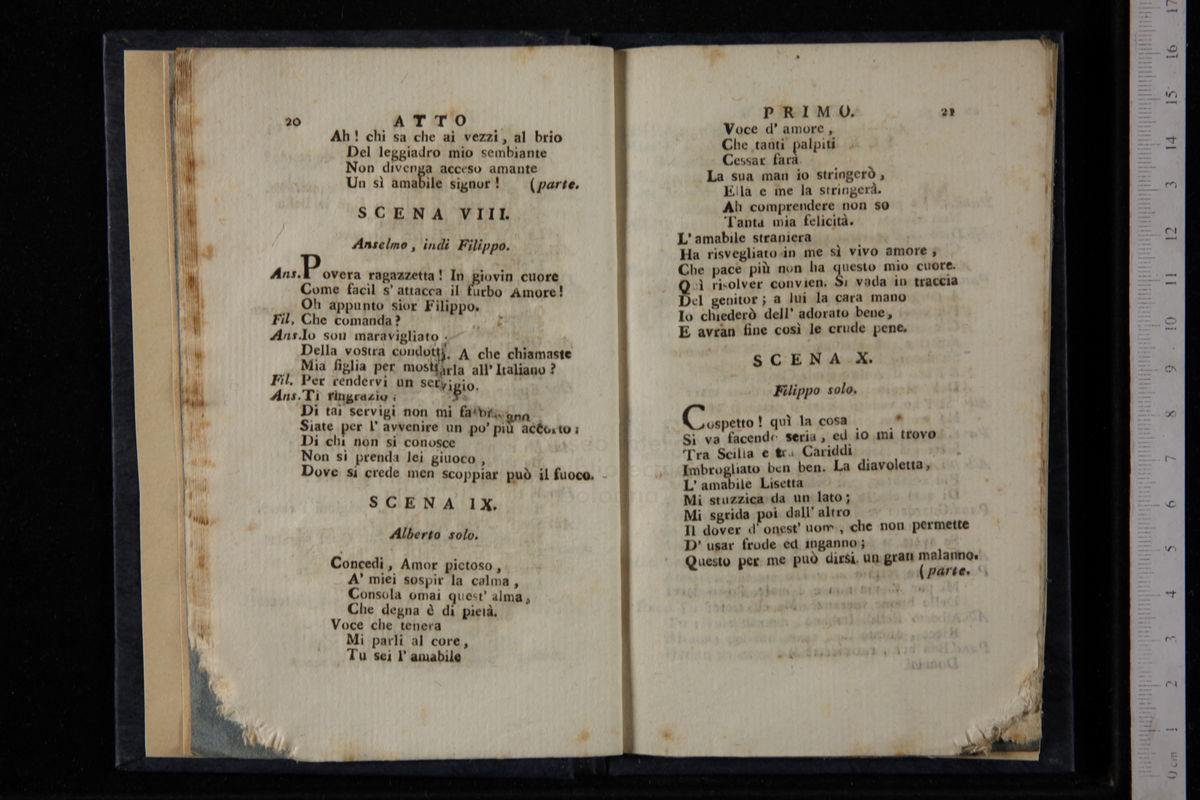 20 ATTO
Ah! chi sa che ai vezzi, al brio
Del leggiadro mio sembiante
Non divenga acceso amante
Un sì amabile signor! (parte.
SCENA VIII.
Anselmo, indi Filippo.
Ans. Povera ragazzetta! In giovin cuore
Come facil s' attacca il furbo Amore!
Oh appunto sior Filippo.
Fil. Che comanda?
Ans. Io son maravigliato
Della vostra condotta. A che chiamaste
Mia figlia per mostrarla all' Italiano?
Fil. Per rendervi un servigio.
Ans. Ti ringrazio:
Di tai servigi non mi fa
Siate per l' avvenire un po' più accorto:
Di chi non si conosce
Non si prenda lei giuoco,
Dove si crede men scoppiar può il fuoco.
SCENA IX.
Alberto solo.
Concedi, Amor pietoso,
A' miei sospir la calma,
Consola omai quest' alma,
Che degna è di pietà.
Voce che tenera
Mi parli al core,
Tu sei l' amabile
PRIMO. 21
Voce d' amore,
Che tanti palpiti
Cessar farà
La sua man io stringerò,
Ella e me la stringerà.
Ah comprendere non so
Tanta mia felicità.
L' amabile straniera
Ha risvegliato in me sì vivo amore,
Che pace più non ha questo mio cuore.
Quì risolver convien. Si vada in traccia
Del genitor; a lui la cara mano
Io chiederò dell' adorato bene,
E avran fine così le crude pene.
SCENA X.
Filippo solo.
Cospetto! quì la cosa
Si va facendo seria, ed io mi trovo
Tra Scilla e tra Cariddi
Imbrogliato ben ben. La diavoletta,
L' amabile Lisetta
Mi stuzzica da un lato;
Mi sgrida poi dall' altro
Il dover d' onest' uom, che non permette
D' usar frode ed inganno;
Questo per me può dirsi un gran malanno.
(parte.
0 cm 1 2 3 4 5 6 7 8 9 10 11 12 13 14 15 16 17